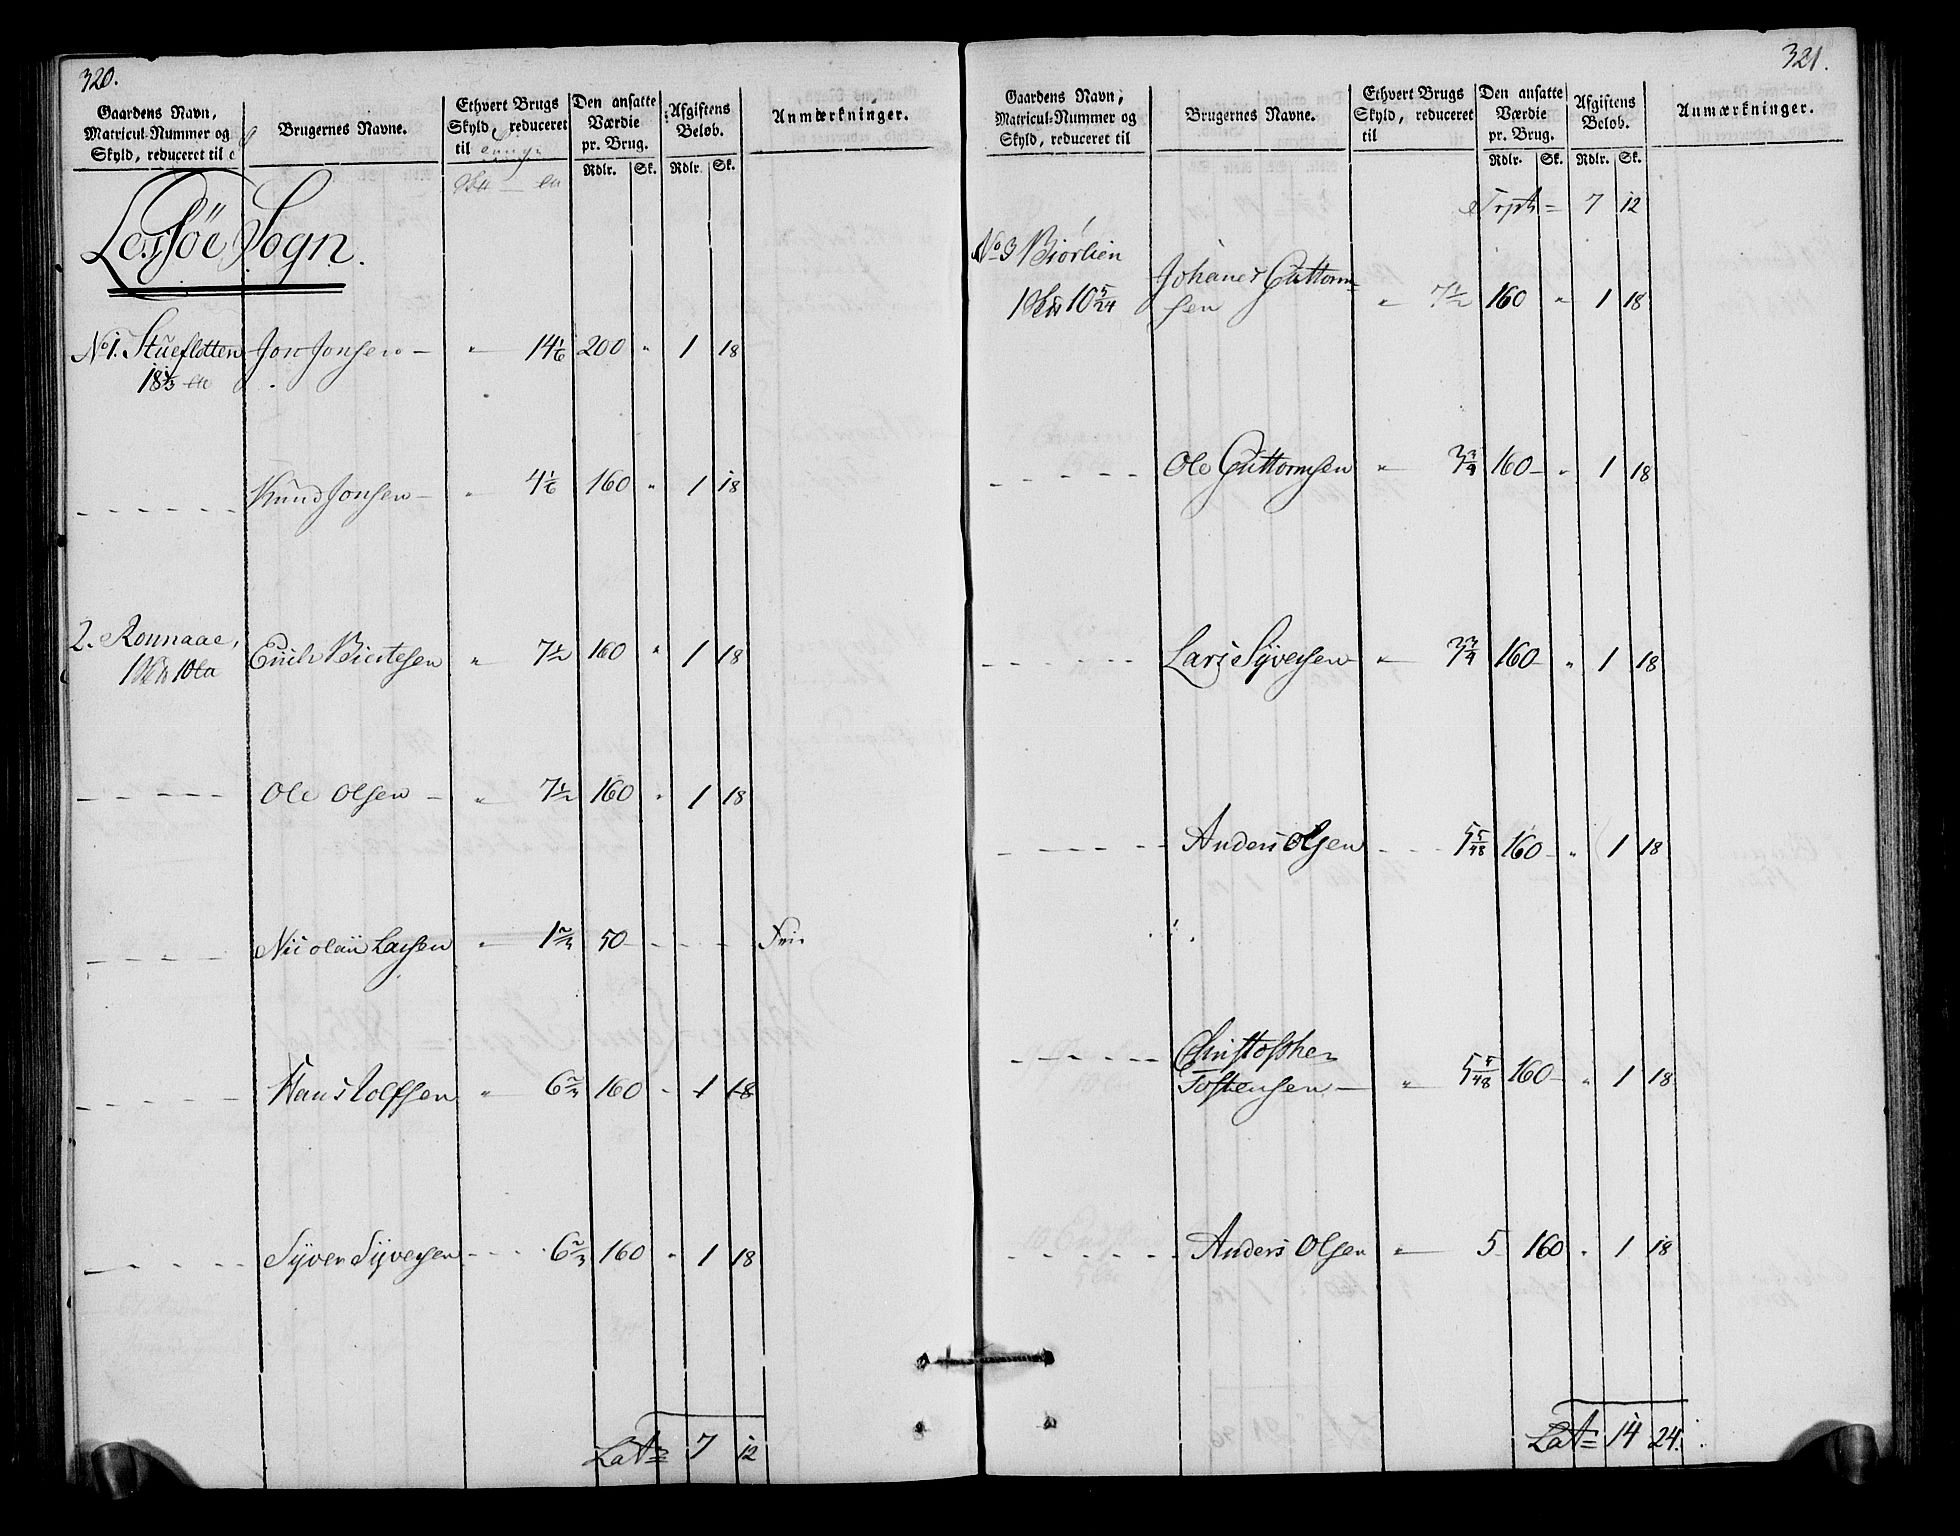 320.
Gaardens Navn,
Matricul-Nummer og
Skyld, reduceret til
Brugernes Navne.
Ethvert Brugs
Skyld, reduceret
til
Den ansatte
Værdie
pr. Brug.
Rdlr. Sk.
Afgiftens
Beløb.
Rdlr. Sk.
Anmærkninger.
Lessöe Sogn.
No 1. Stueflotten Jon Jonsen — " 14 1/6 200 " 1 18
18 1/3
Knud Jonsen — " 4 1/6 160 " 1 18
2. Rønnaae, Erich Biertesen " 7 1/2 160 " 1 18
1 10
Ole Olsen — " 7 1/2 160 " 1 18
Nicolai Larsen " 1 2/3 50 - - - Frie
Hans Rolfsen " 6 2/3 160 - 1 18
Syver Syversen - - - 6 2/3 160 " 1 18
Lat = 7 12
321.
Gaardens Navn,
Matricul-Nummer og
Skyld, reduceret til
Brugernes Navne.
Ethvert Brugs
Skyld, reduceret
til
Den ansatte
Værdie
pr. Brug.
Rdlr. Sk.
Afgiftens
Beløb.
Rdlr. Sk.
Anmærkninger.
Trspt = 7 12
No 3 Biørlien
Johanes Guttorm-
1 10 5/24 sen " 7 1/2 160 " 1 18
Ole Guttormsen " 3 3/4 160 - " 1 18
Lars Syversen " 3 3/4 160 - " 1 18
Anders Olsen - - - 5 5/48 160 - " 1 18
Christopher
Tostensen — " 5 5/48 160 - " 1 18
Anders Olsen " 5 160 " 1 18
Lat = 14 24.